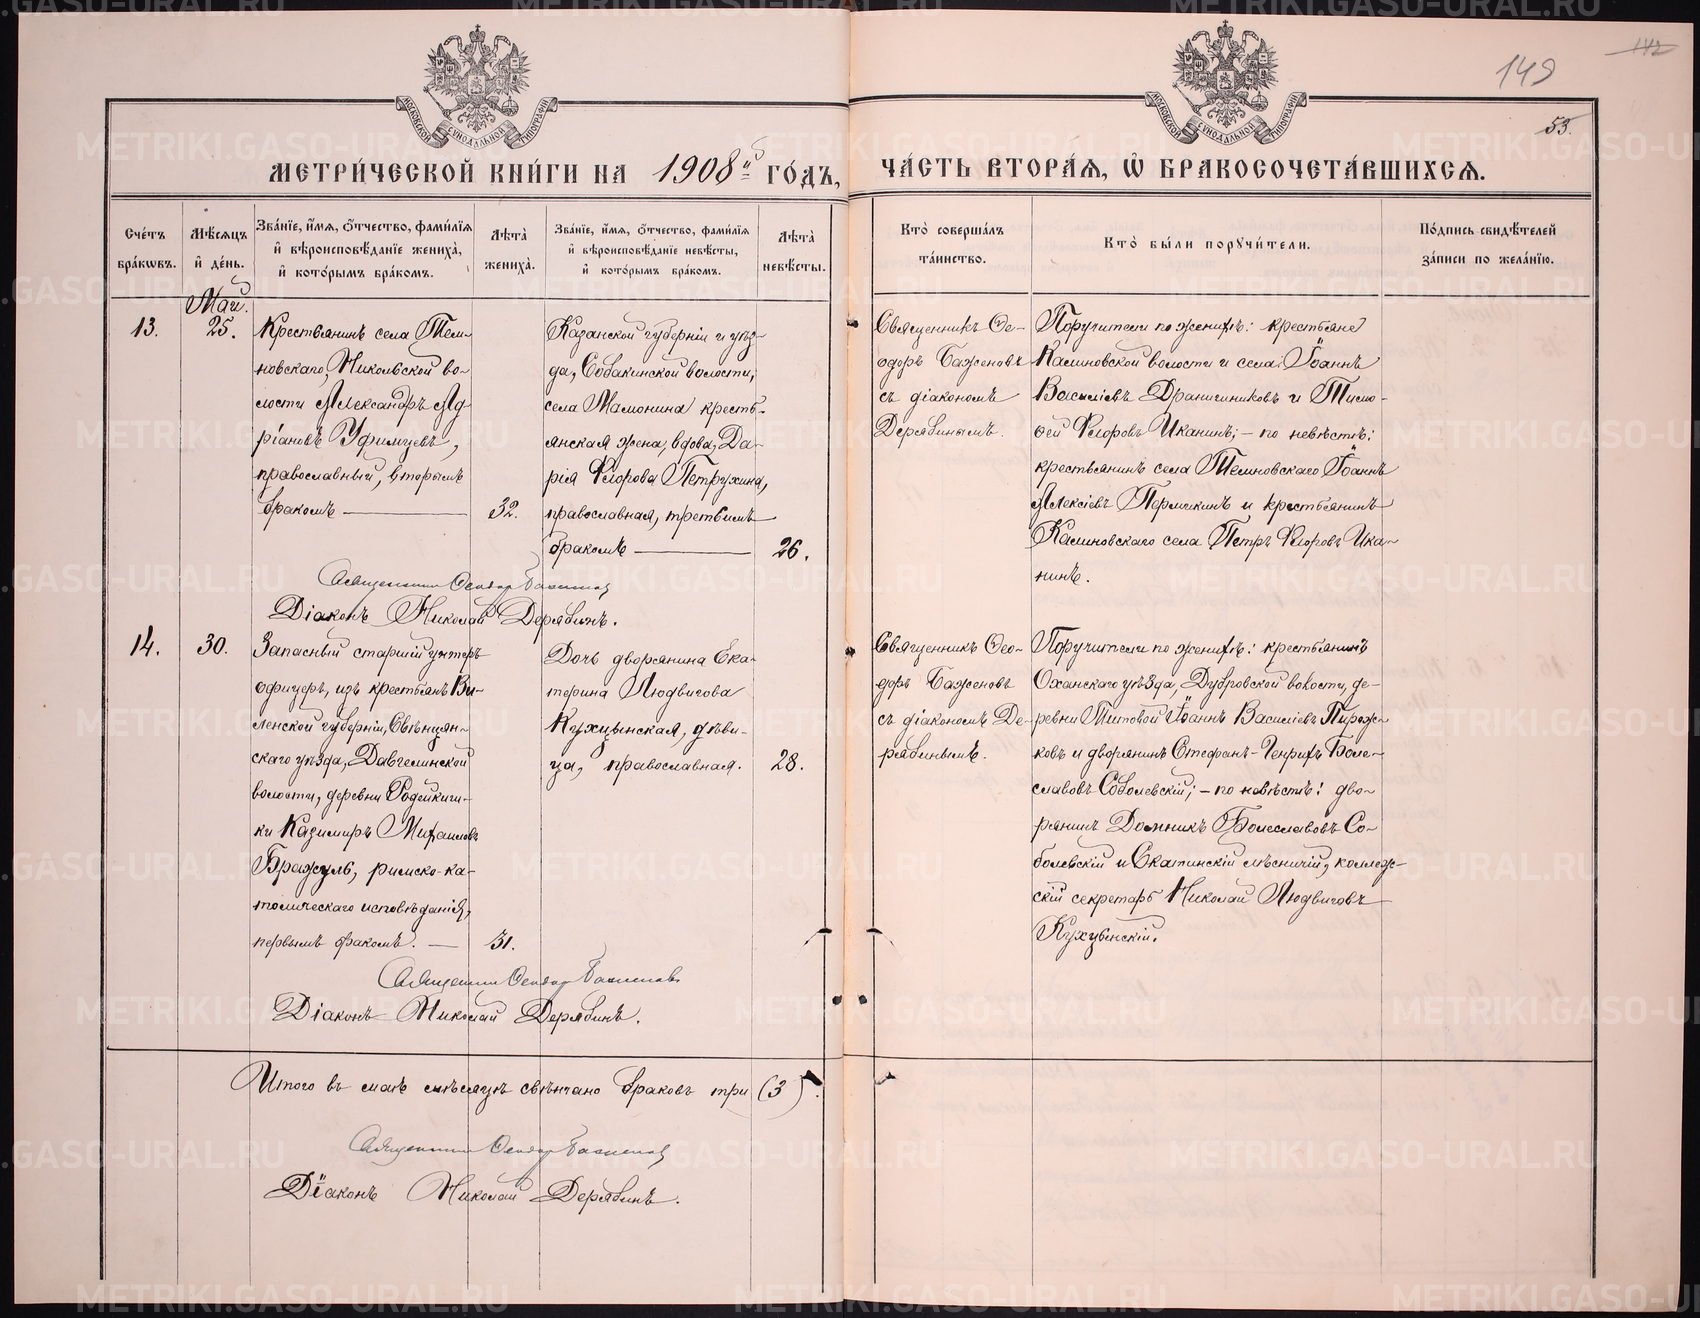 149
142
53.
МОСКОВСКОЙ СѴНОДАЛЬНОЙ ТИПОГРАФІИ
МОСКОВСКОЙ СѴНОДАЛЬНОЙ ТИПОГРАФІИ
МЕТРИ́ЧЕСКОЙ КНИ́ГИ НА 1908й ГО́ДЪ,
ЧА́СТЬ ВТОРА́Ѧ, Ѡ҆ БРАКОСОЧЕТА́ВШИХСѦ.
Сче́тъ бра́кѡвъ.
Мѣ́сѧцъ и҆ де́нь.
Зва́нїе, и҆́мѧ, ѻ҆́тчество, фами́лїѧ
и҆ вѣроисповѣ́данїе жениха̀,
и҆ кото́рымъ бра́комъ.
Лѣ́та̀ жениха̀.
Зва́нїе, и҆́мѧ, ѻ҆́тчество, фами́лїѧ
и҆ вѣроисповѣ́данїе невѣ́сты,
и҆ кото́рымъ бра́комъ.
Лѣ́та̀ невѣ́сты.
Кто̀ соверша́лъ
та́инство.
Кто̀ бы́ли порꙋчи́тели.
По́дпись свидѣ́телей
за́писи по жела́нїю.
Май.
13.
25.
Крестьянинъ села Теми-
новскаго, Никольской во-
лости Александръ Ад
ріановъ Уфимцевъ,
православный, вторымъ
бракомъ —
32.
Казанской губерніи и уѣз-
да, Собакинской волости,
села Мамонина кресть-
янская жена, вдова, Да-
рія Ѳедорова Петрухина,
православная, третьимъ
бракомъ —
26.
Священникъ Ѳе-
одоръ Баженовъ
съ діакономъ
Дерябинымъ.
Поручители по женихѣ: крестьяне
Калиновской волости и села: Іоаннъ
Василіевъ Драничниковъ и Тимо-
ѳей Ѳедоровъ Иканинъ; – по невѣстѣ:
крестьянинъ села Теминовскаго Іоаннъ
Алексіевъ Пермикинъ и крестьянинъ
Калиновскаго села Петръ Ѳедоровъ Ика-
нинъ.
Священникъ Ѳеодоръ Баженовъ
Діаконъ Николай Дерябинъ.
14.
30.
Запасный старшій унтеръ
офицеръ, изъ крестьянъ Ви-
ленской губерніи, Свѣнцян-
скаго уѣзда, Давгелишской
волости, деревни
Казимиръ Михаиловъ
Бражуль, римско-ка-
толическаго исповѣданія,
первымъ бракомъ. —
31.
Дочь дворянина Ека-
терина Людвигова
Кухцынская, дѣви-
ца, православная.
28.
Священникъ Ѳео-
доръ Баженовъ
съ діакономъ Де-
рябинымъ.
Поручители по женихѣ: крестьянинъ
Оханскаго уѣзда, Дубровской волости, де-
ревни Титовой Іоаннъ Василіевъ Пирож-
ковъ и дворянинъ Стефанъ-Генрихъ Боле-
славовъ Соболевскій; – по невѣстѣ: дво-
рянинъ Доминикъ Болеславовъ Со-
болевскій и Скатинскій лѣсничій, коллеж-
скій секретарь Николай Людвиговъ
Кухцынскій.
Священникъ Ѳеодоръ Баженовъ
Діаконъ Николай Дерябинъ.
Итого въ маѣ мѣсяцѣ свѣнчано браковъ три (3).
Священникъ Ѳеодоръ Баженовъ
Діаконъ Николай Дерябинъ.
METRIKI.GASO-URAL.RU